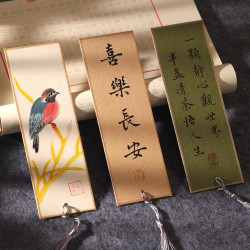 喜樂長安
一顆靜心觀世界
半盞清茶悟人生